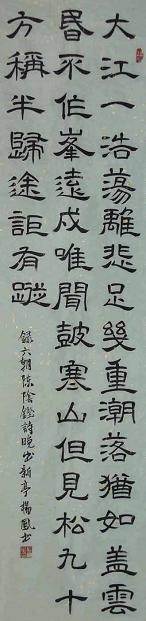 大江一浩蕩離悲足幾重潮落猶如盖雲
昏不作峯遠戍唯聞鼓寒山但見松九十
方稱半歸途詎有蹤
録六朝陳陰鏗詩晚出新亭楊鳳书